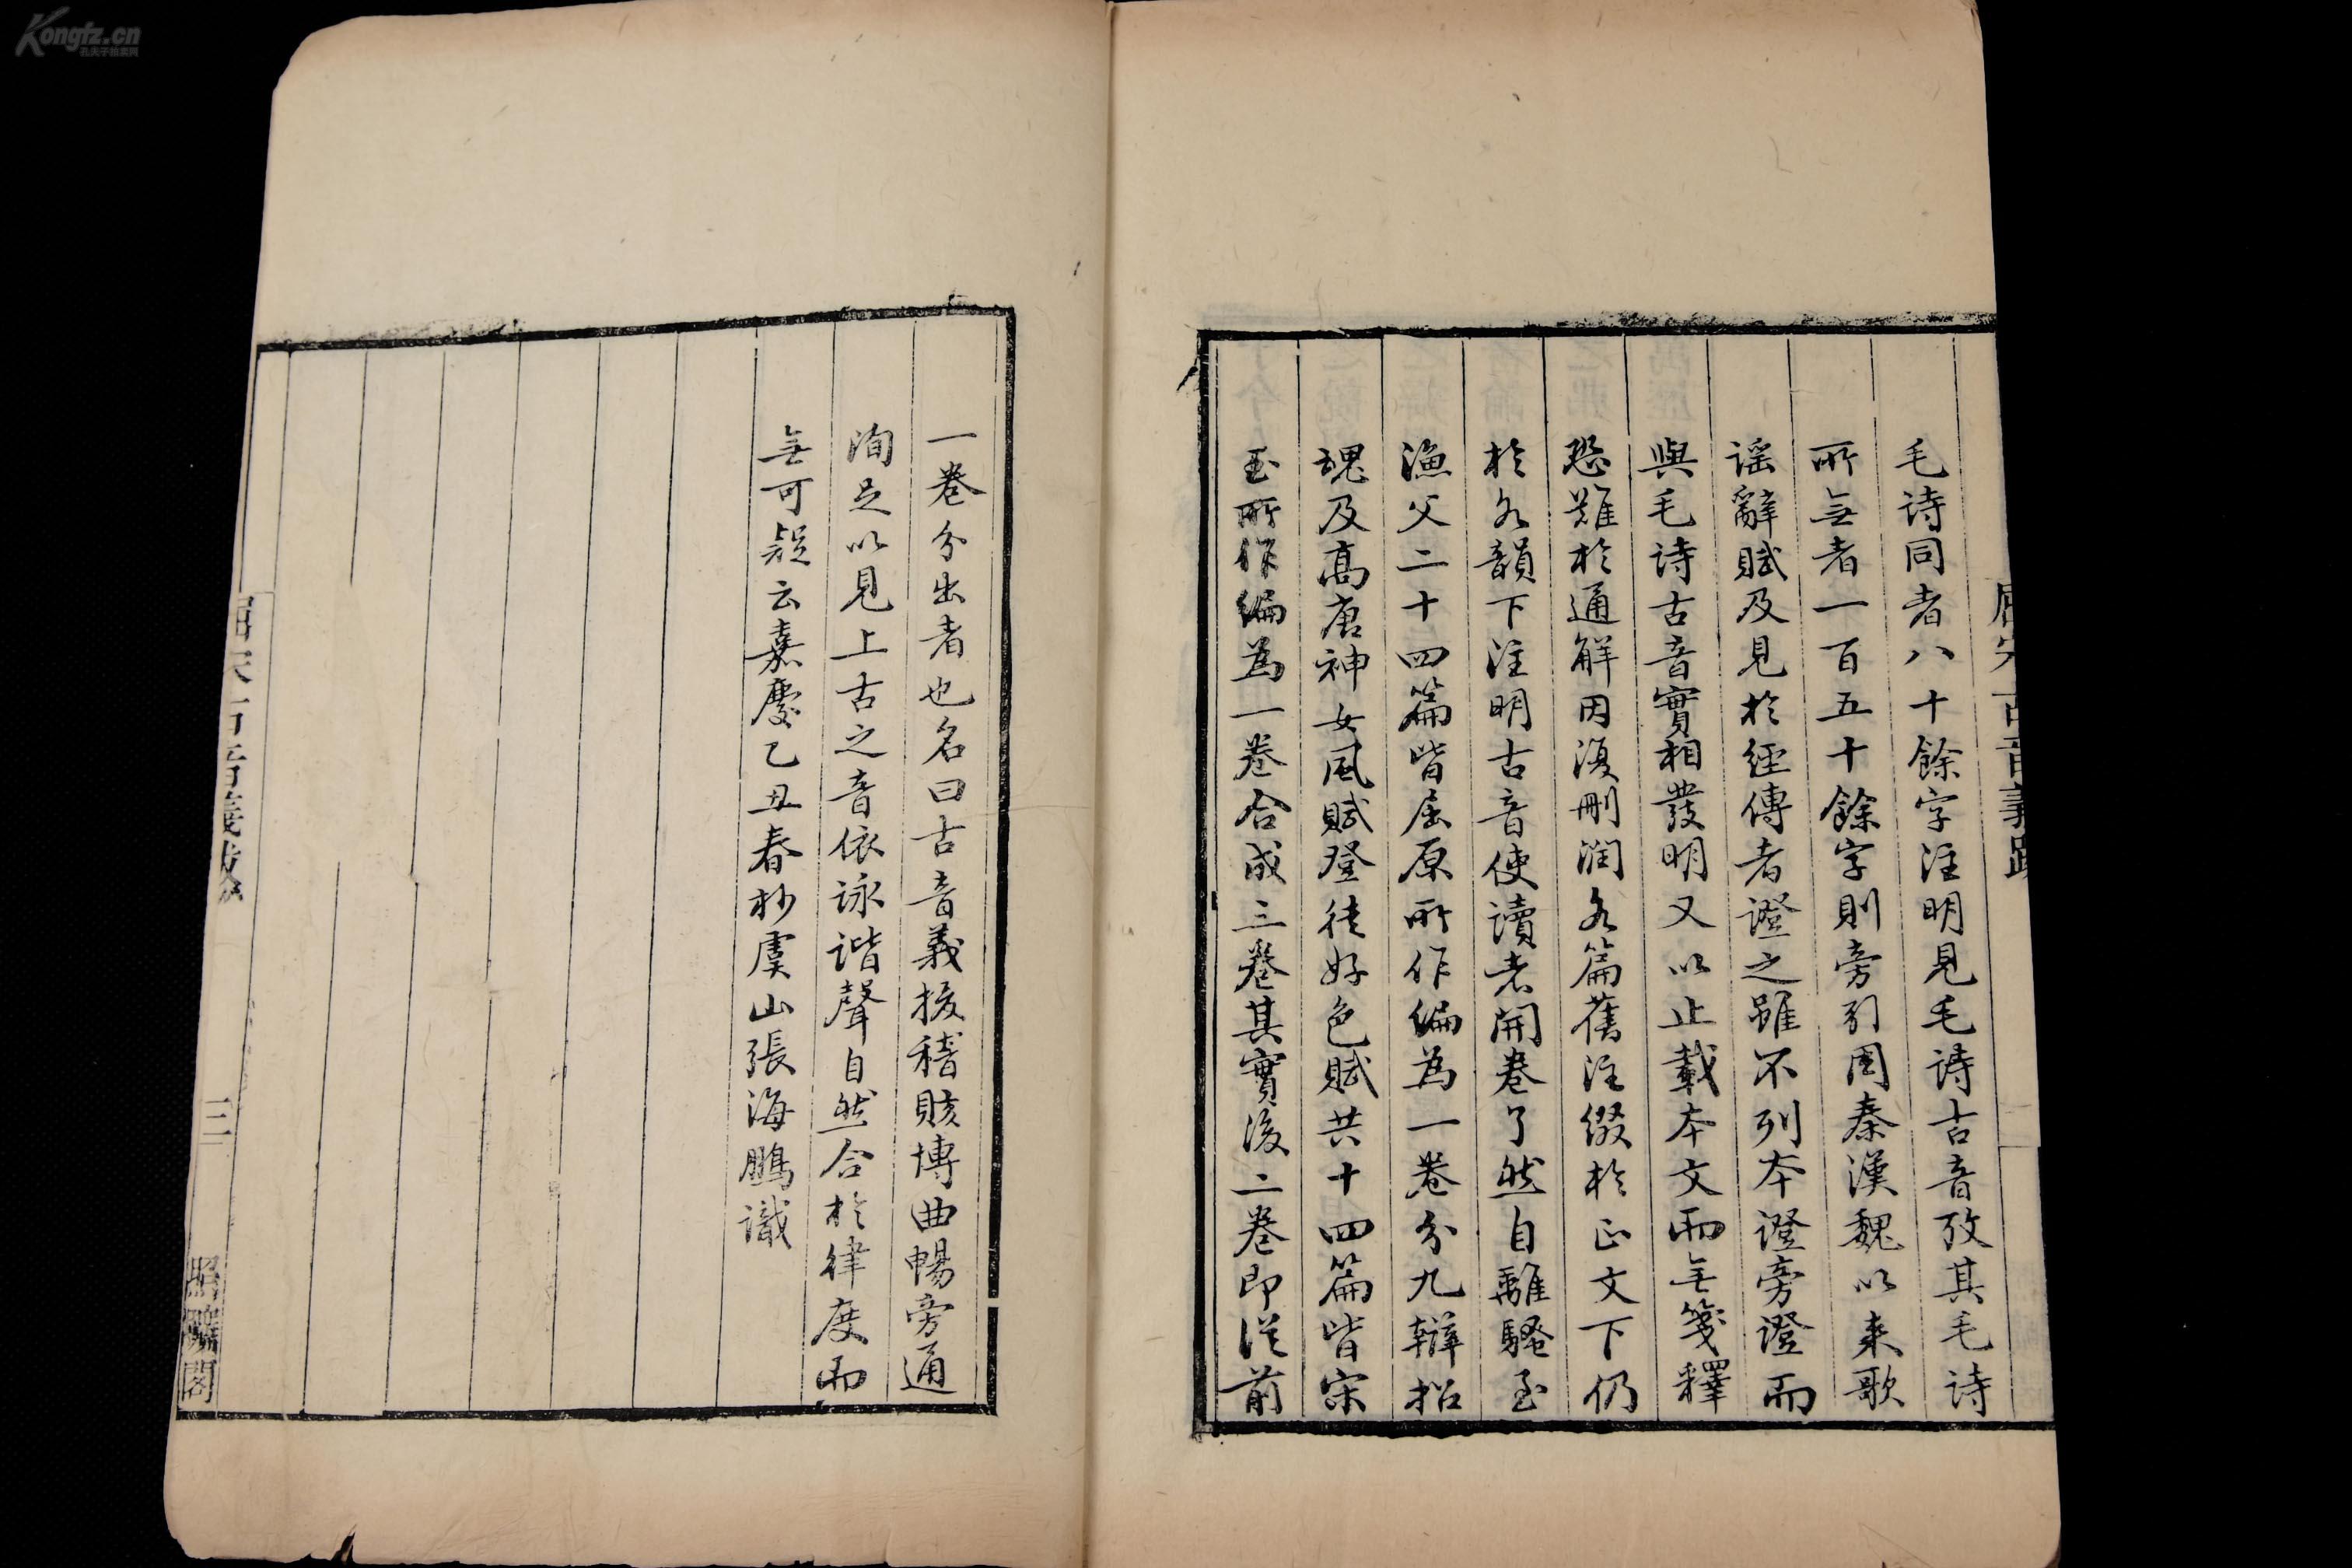 毛詩同者八十餘字注明見毛詩古音攷其毛詩
所無者一百五十餘字則旁引周秦漢魏以來歌
謡辭賦及見於經傳者證之雖不列本證旁證而
與毛詩古音實相發明又以止載本文而無箋釋
恐難於通解因復刪潤各篇舊注綴於正文下仍
於各韻下注明古音使讀者開卷了然自離騷至
漁父二十四篇皆屈原所作編為一卷分九辯招
魂及高唐神女風賦登徒好色賦共十四篇皆宋
玉所作編為一卷合成三卷其實後二卷即從前
一卷分出者也名曰古音義援稽賅博曲暢旁通
洵足以見上古之音依詠諧聲自然合於律度而
無可疑云嘉慶乙丑春杪虞山張海鵬識
屈宋古音義跋
三
照曠閣
Kongfz.cn